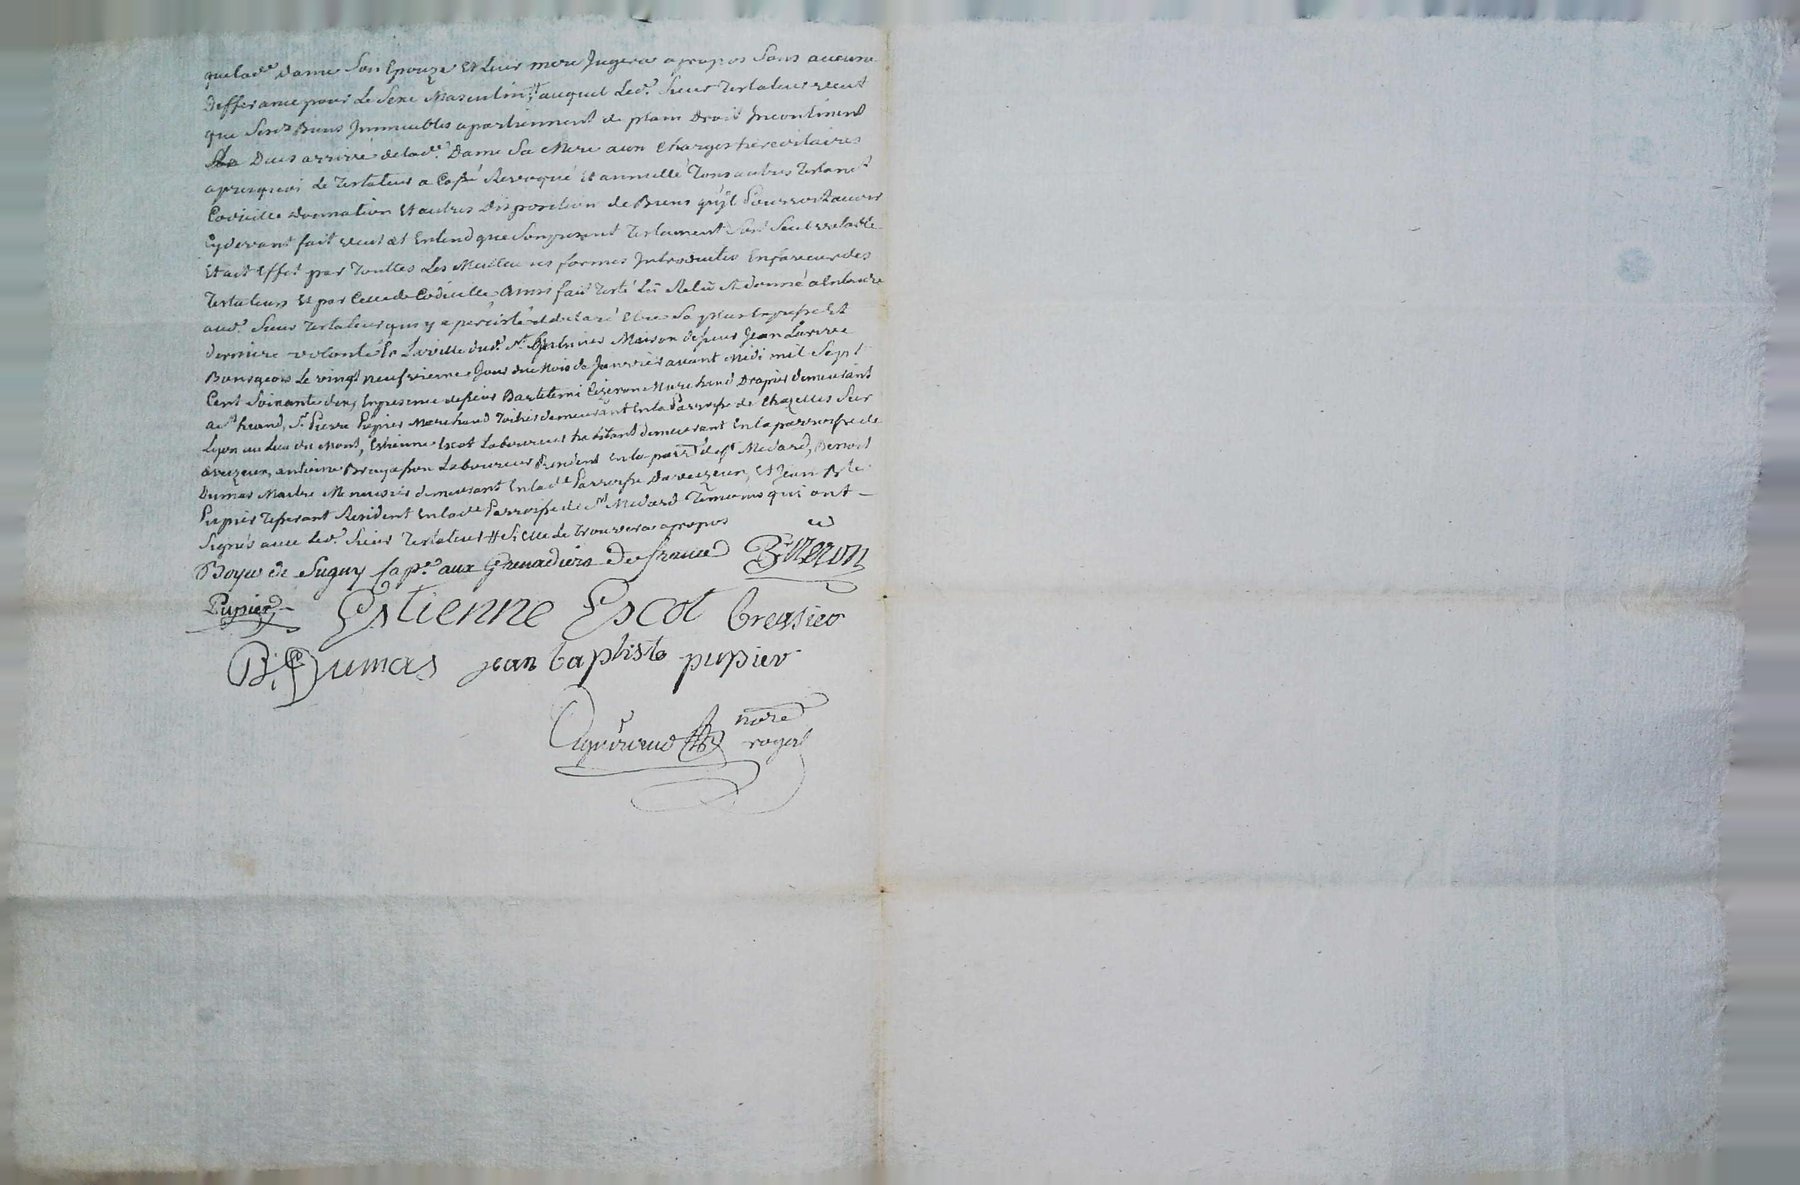 que lad.e dame Son Epouze et leur mere Jugera a propos Sans aucune
defferance pour le Sexe Masculin # auquel led.t Sieur Testateur veut
que Sesd. Biens Immeubles apartiennent de plain Droit Incontinent
Deces arrivé de lad.e Dame Sa Mere aux Charges hereditaires
apres quoi le Testateur a Cassé Revoqué et annullé Tous autres Testam.t
Codicille donnation et autres disposition de Biens qu'il Pourroit avoir
Cydevant fait veut et Entend que Son present Testament Soit Seul valable
Et ait Effet par Touttes Les Meilleures formes Introduites En faveur des
Testateurs et par Celle de Codicille Ainsi fait Testé Lû Relû et donné a Entendre
aud.t Sieur Testateur qui y a percisté et declaré Etre Sa plus Expresse Et
derniere volonté En La ville dud.t S.t Maison de Sieur Jean
Bourgeois Le vingt neufvieme Jour du Mois de Janvier avant Midi mil Sept
Cent Soixante dix, En presence de Sieur Bartelemi Marchand Drapier demeurant
aud.t S.r Pierre Pupier Marchand demeurant En la Parroisse de Chazelles Sur
Lyon au Lieu du Mont, Estienne Escot Laboureur habitant demeurant En la parroisse de
antoine Laboureur Resident En la parr.e de S.t Medard, Benoit
Dumas Maitre Menuisier demeurant En lad.e Parroisse et Jean B.te
Pupier Resident En lad.e Parroisse de S.t Medard Temoins qui ont
Signés avec led.t Sieur Testateur # Si Elle Le Trouvera apropos
Boyer de Sugny Cap.e aux Grenadiers De france
Pupier Estienne Escot
B. Dumas jean baptiste pupier
no.re
royal